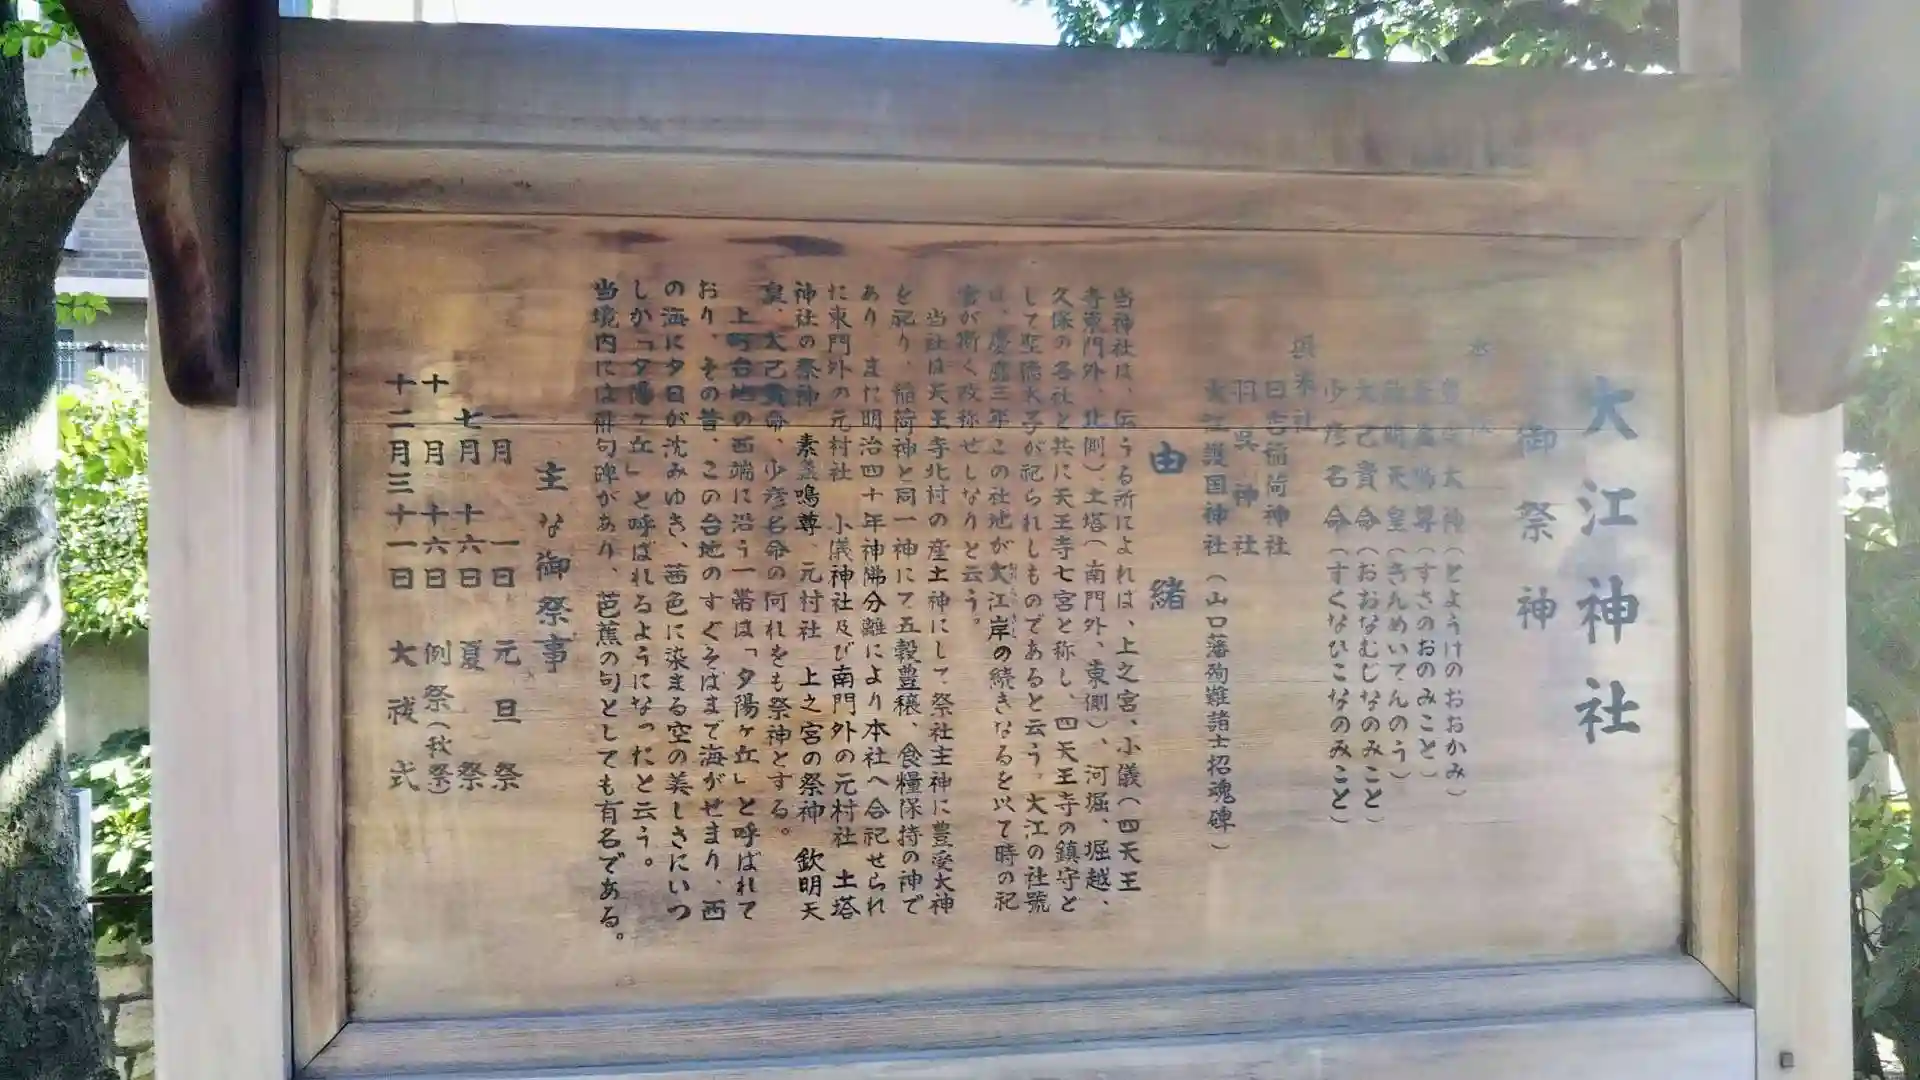 大江神社
御祭神
本社
豊受大神(とようけのおおかみ)
素盞嗚尊(すさのおのみこと)
欽明天皇(きんめいてんのう)
大己貴命(おおなむじなのみこと)
少彦名命(すくなひこなのみこと)
末社
日吉稲荷神社
羽呉神社
大江護国神社(山口藩殉難諸士招魂碑)
由緒
当神社は、伝うる所によれは、上之宮、小儀(四天王
寺東門外、北側)、土塔(南門外、東側)、河堀、堀越、
久保の各社と共に天王寺七宮と称し、四天王寺の鎮守と
して聖徳太子が祀られしものであると云う。大江の社號
は、慶應三年この社地が大江岸の続きなるを以て時の祀
官が斯く改称せしなりと云う。
当社は天王寺北村の産土神にして祭社主神に豊受大神
を祀り、稲荷神と同一神にて五穀豊穣、食糧保持の神で
あり、また明治四十年神佛分離により本社へ合祀せられ
に東門外の元村社 小儀神社及び南門外の元村社 土塔
神社の祭神 素盞鳴尊、元村社 上之宮の祭神 欽明天
皇、大己貴命、少彦名命の何れをも祭神とする。
上町台地の西端に沿う一帯は「夕陽ヶ丘」と呼ばれて
おり、その昔、この台地のすぐそばまで海がせまり、西
の海に夕日が沈みゆき、茜色に染まる空の美しさにいつ
しか「夕陽ヶ丘」と呼ばれるようになったと云う。
当境内には俳句碑があり、芭蕉の句としても有名である。
主な御祭事
一月 一日 元旦祭
七月 十六日 夏祭
十月 十六日 例祭(秋祭)
十二月三十一日 大祓式